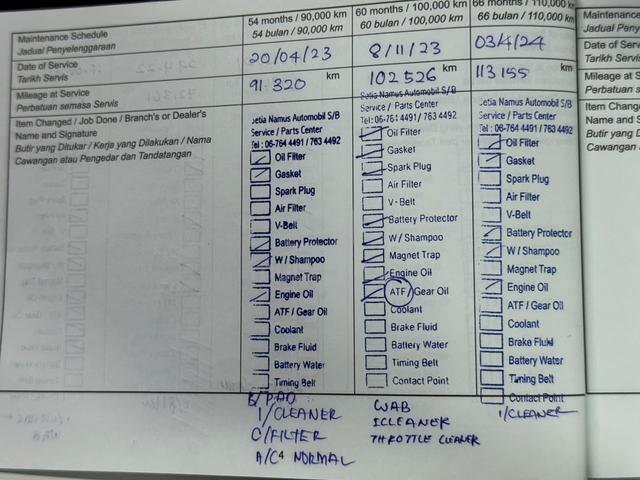 Maintenance Schedule
Jadual Penyelenggaraan
54 months / 90,000 km
54 bulan / 90,000 km
60 months / 100,000 km
60 bulan / 100,000 km
66 months / 110,000 km
66 bulan / 110,000 km
Maintenance
Jadual Peny
Date of Service
Tarikh Servis
20/04/23
8/11/23
03/4/24
Date of Serv
Tarikh Servi
Mileage at Service
Perbatuan semasa Servis
91 320 km
102 526 km
113 155 km
Mileage at S
Perbatuan s
Item Changed / Job Done / Branch's or Dealer's
Name and Signature
Butir yang Ditukar / Kerja yang Dilakukan / Nama
Cawangan atau Pengedar dan Tandatangan
Item Chang
Name and S
Butir yang D
Cawangan
Setia Namus Automobil S/B
Service / Parts Center
Tel : 06-764 4491 / 763 4492
Oil Filter
Gasket
Spark Plug
Air Filter
V-Belt
Battery Protector
W / Shampoo
Magnet Trap
Engine Oil
ATF / Gear Oil
Coolant
Brake Fluid
Battery Water
Timing Belt
B/PAD
I/CLEANER
C/FILTER
A/C4 NORMAL
Setia Namus Automobil S/B
Service / Parts Center
Tel : 06-764 4491 / 763 4492
Oil Filter
Gasket
Spark Plug
Air Filter
V-Belt
Battery Protector
W / Shampoo
Magnet Trap
Engine Oil
ATF / Gear Oil
Coolant
Brake Fluid
Battery Water
Timing Belt
Contact Point
WAB
ICLEANER
THROTTLE CLEANER
Setia Namus Automobil S/B
Service / Parts Center
Tel : 06-764 4491 / 763 4492
Oil Filter
Gasket
Spark Plug
Air Filter
V-Belt
Battery Protector
W / Shampoo
Magnet Trap
Engine Oil
ATF / Gear Oil
Coolant
Brake Fluid
Battery Water
Timing Belt
Contact Point
I/CLEANER